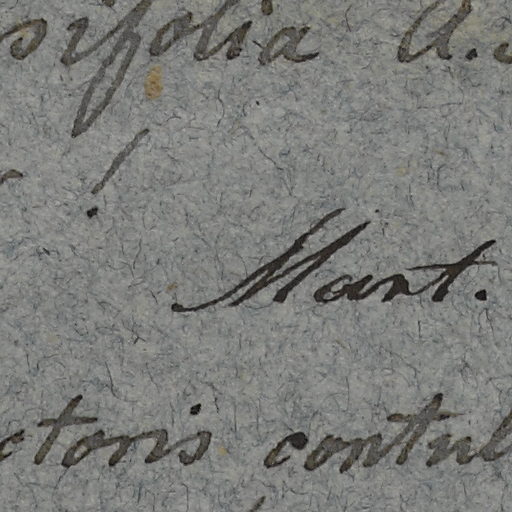 sifolia A.
!
Mart.
ctoris contul